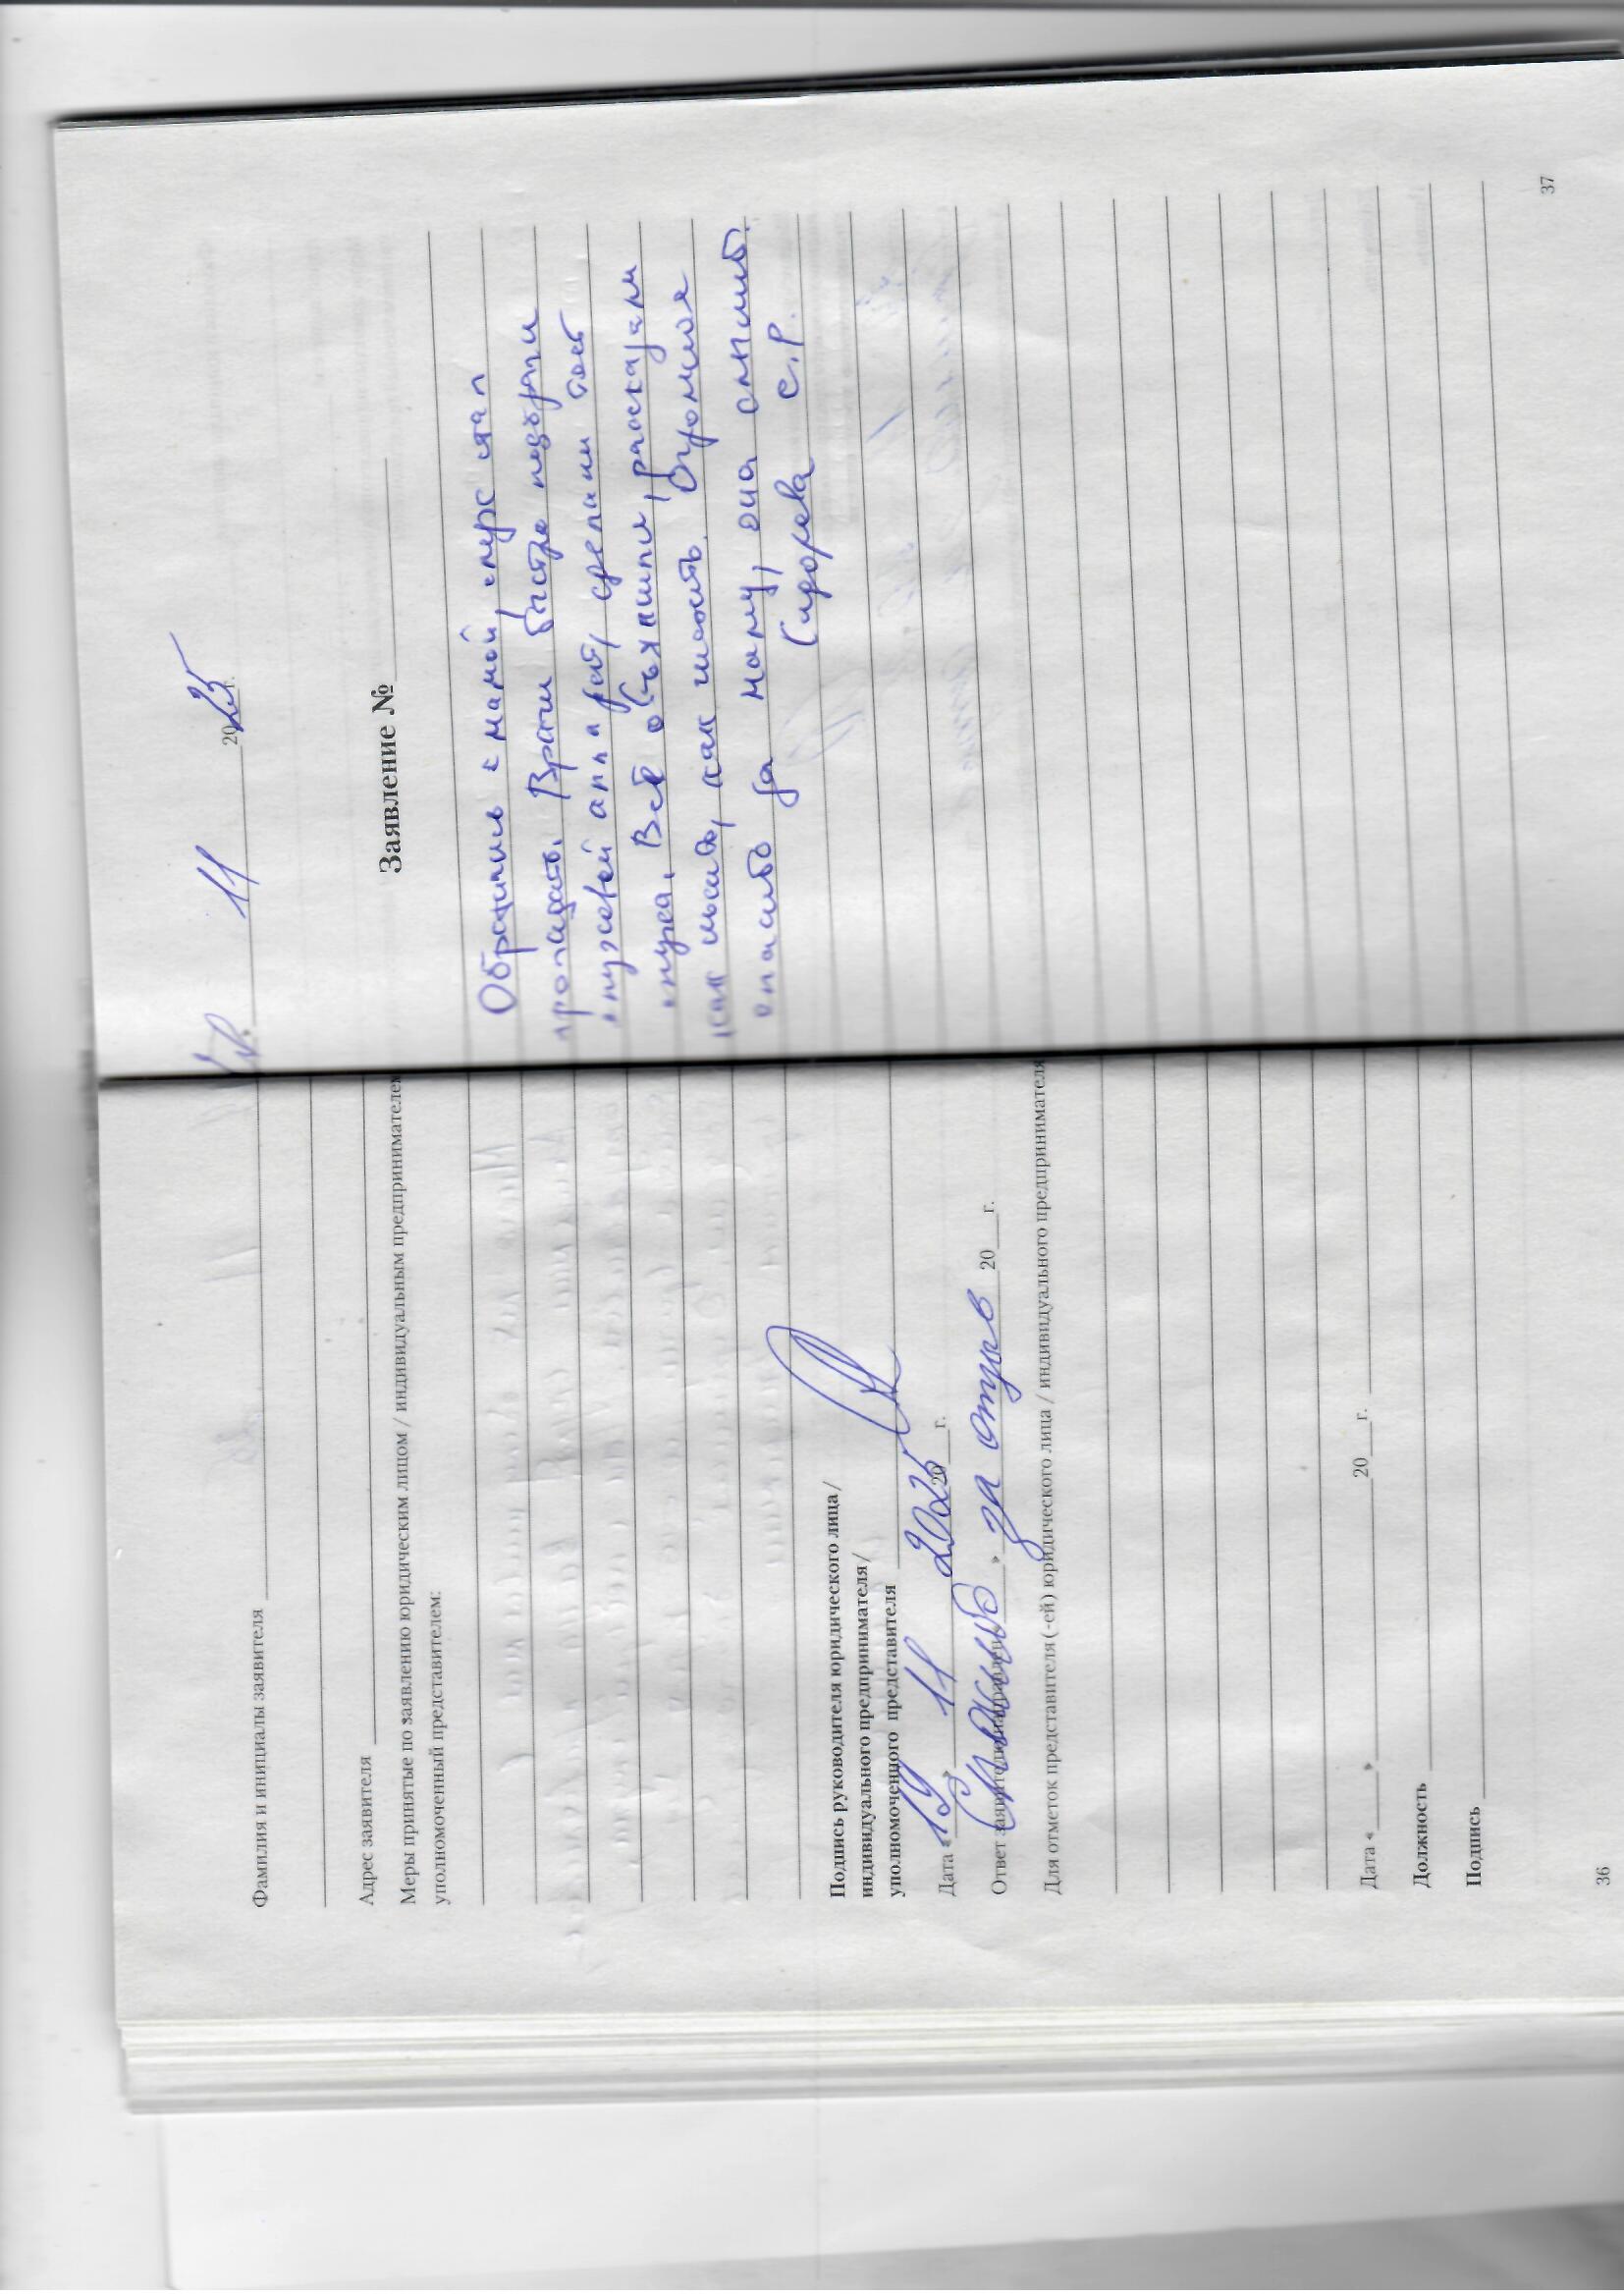 Фамилия и инициалы заявителя
Адрес заявителя
Меры принятые по заявлению юридическим лицом / индивидуальным предпринателем
уполномоченный представителем:
Подпись руководителя юридического лица/
индивидуального предпринимателя/
уполномоченного представителя
Дата « 19 » 11 2025 20 г.
Ответ заявителю направлен » 20 г.
Спасибо за отзыв
Для отметок представителя (-ей) юридического лица / индивидуального предпринимателя
Дата « » 20 г.
Должность
Подпись
36
11 2025 г.
Заявление №
Обратились с мамой, слух стал
пропадать. Врачи быстро подобрали
слуховой аппарат, сделали тест
слуха. Всё объяснили, рассказали
как мыть, как носить. Огромное
спасибо за маму, она слышит.
Сидорова С.Р.
37